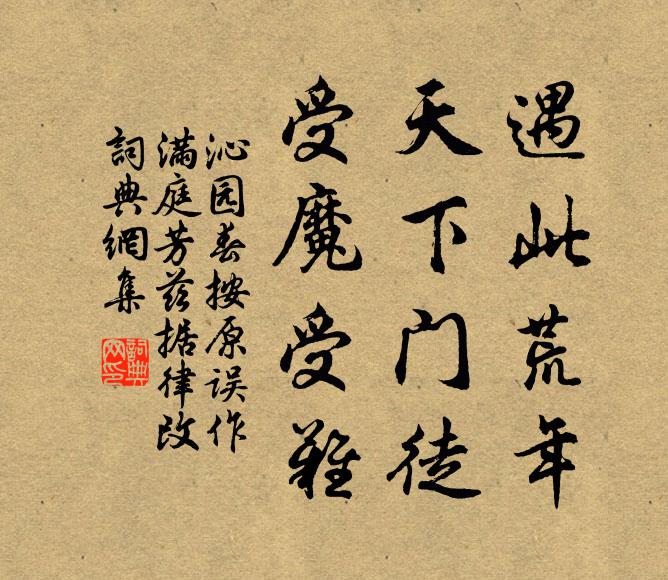 遇此荒年
天下门徒
受魔受难
沁园春按原误作
满庭芳兹据律改
詞典網集
詞典网印